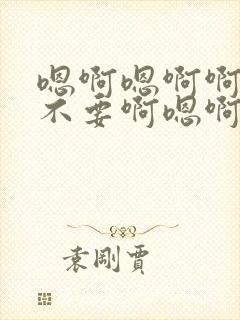 嗯啊嗯啊啊
不要啊嗯啊
袁刚贾